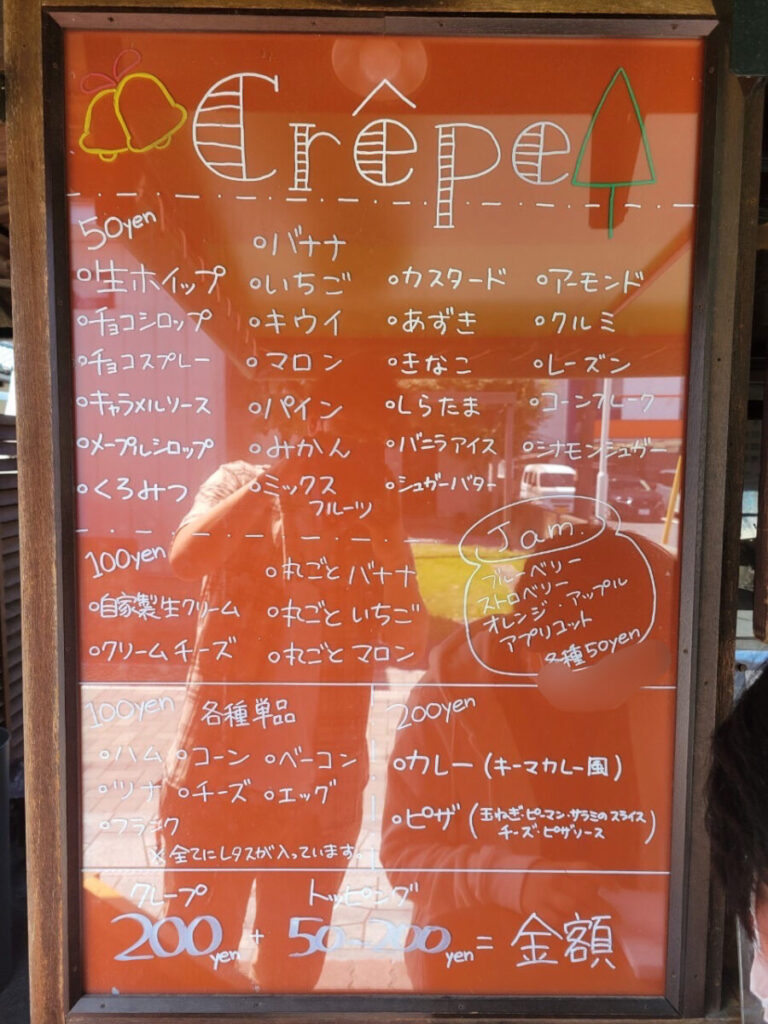 Crêpe
50yen
○バナナ
○生ホイップ ○いちご ○カスタード ○アーモンド
○チョコシロップ ○キウイ ○あずき ○クルミ
○チョコスプレー ○マロン ○きなこ ○レーズン
○キャラメルソース ○パイン ○しらたま ○コーンフレーク
○メープルシロップ ○みかん ○バニラアイス ○シナモンシュガー
○くろみつ ○ミックスフルーツ ○シュガーバター
100yen
○丸ごとバナナ
○自家製生クリーム ○丸ごといちご
○クリームチーズ ○丸ごとマロン
Jam.
ブルーベリー
ストロベリー
オレンジ・アップル
アプリコット
各種50yen
100yen 各種単品
○ハム ○コーン ○ベーコン
○ツナ ○チーズ ○エッグ
○フランク
※全てにレタスが入っています。
200yen
○カレー(キーマカレー風)
○ピザ(玉ねぎ・ピーマン・サラミのスライス
チーズ・ピザソース)
クレープ トッピング
200yen + 50~200yen = 金額